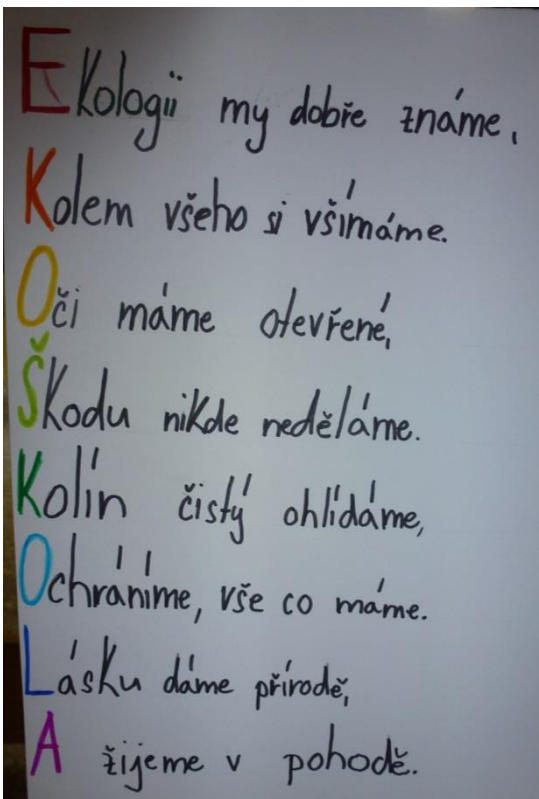 Ekologii my dobře známe,
Kolem všeho si všímáme.
Oči máme otevřené,
Škodu nikde neděláme.
Kolín čistý ohlídáme,
Ochráníme, vše co máme.
Lásku dáme přírodě,
A žijeme v pohodě.